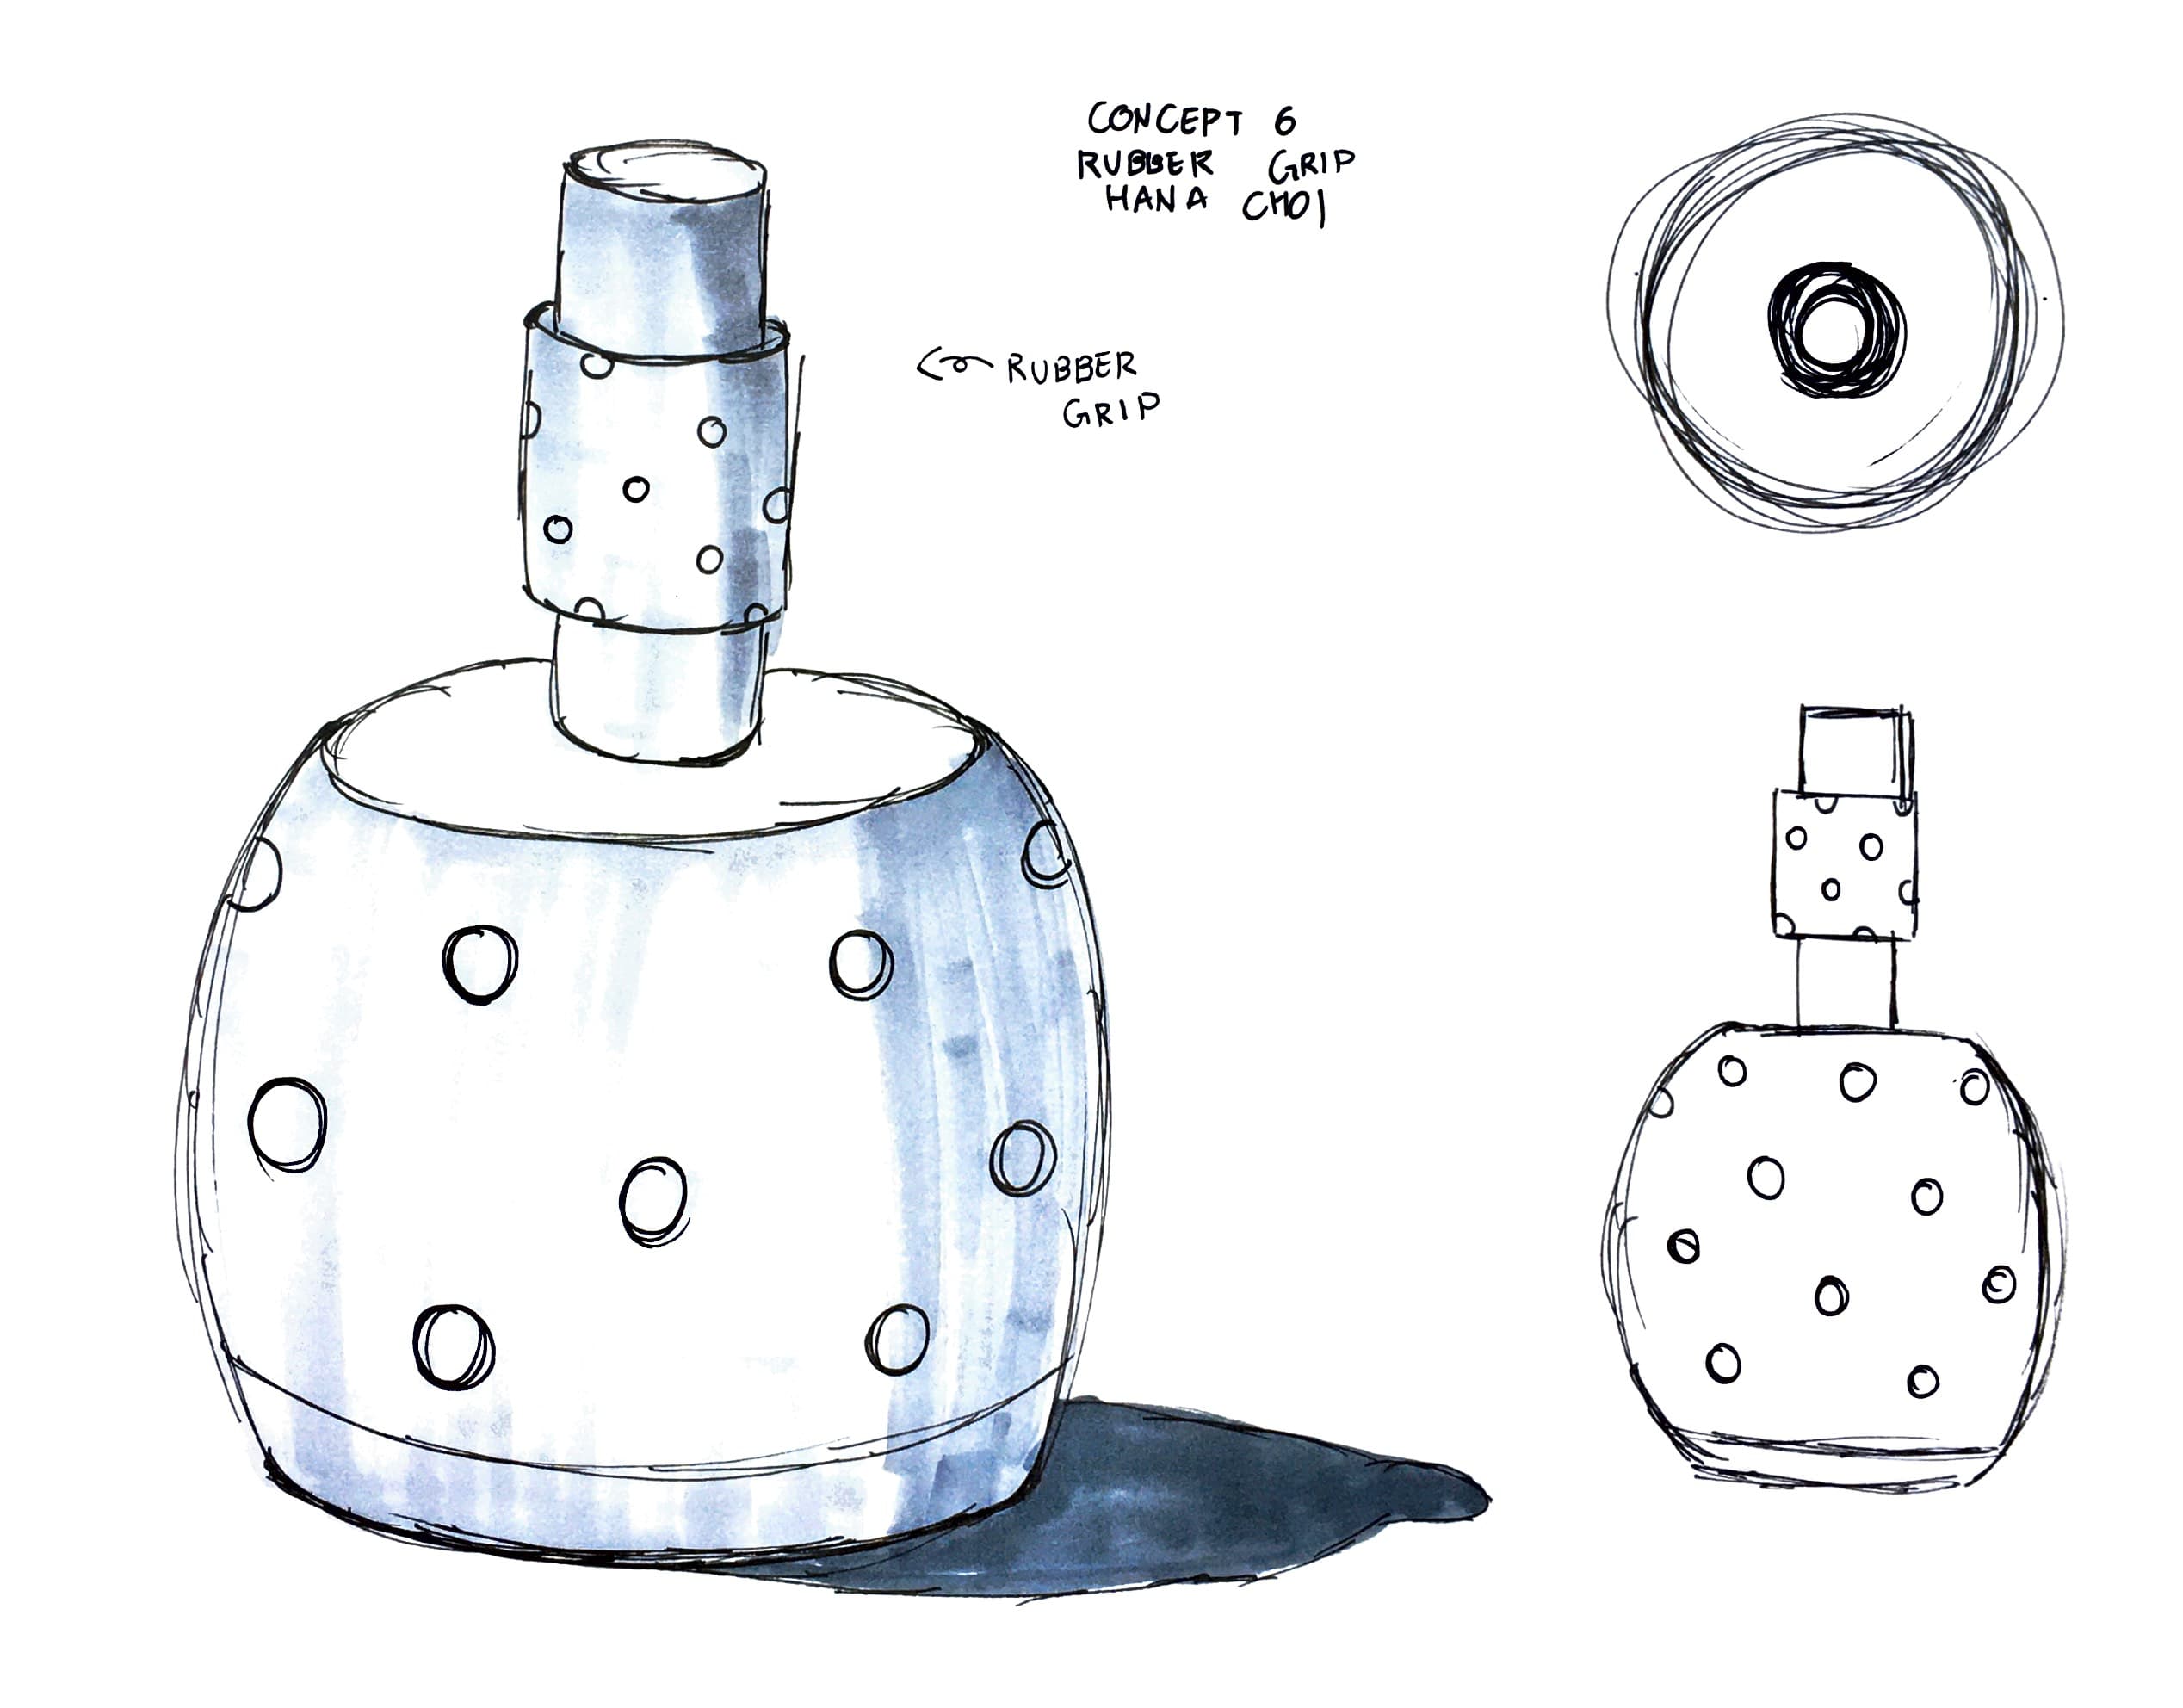 CONCEPT 6
RUBBER GRIP
HANA CHOI
RUBBER
GRIP